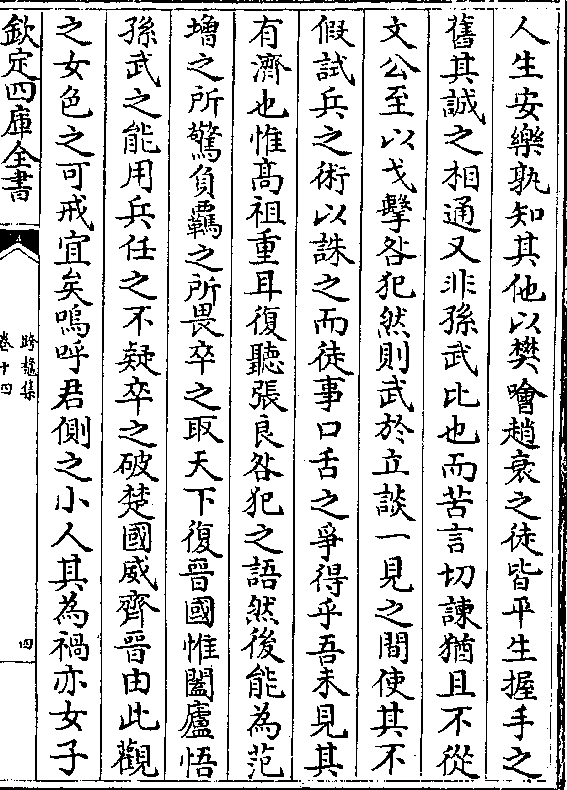 人生安樂孰知其他以樊噲趙衰之徒皆平生握手之
舊其誠之相通又非孫武比也而苦言切諫猶且不從
文公至以戈擊咎犯然則武於立談一見之間使其不
假試兵之術以誅之而徒事口舌之爭得乎吾未見其
有濟也惟髙祖重耳復聽張良咎犯之語然後能為范
增之所驚負羈之所畏卒之取天下復晉國惟闔廬悟
孫武之能用兵任之不疑卒之破楚國威齊晉由此觀
之女色之可戒宜矣嗚呼君側之小人其為禍亦女子
欽定四庫全書
跨鼇集
卷十四
四